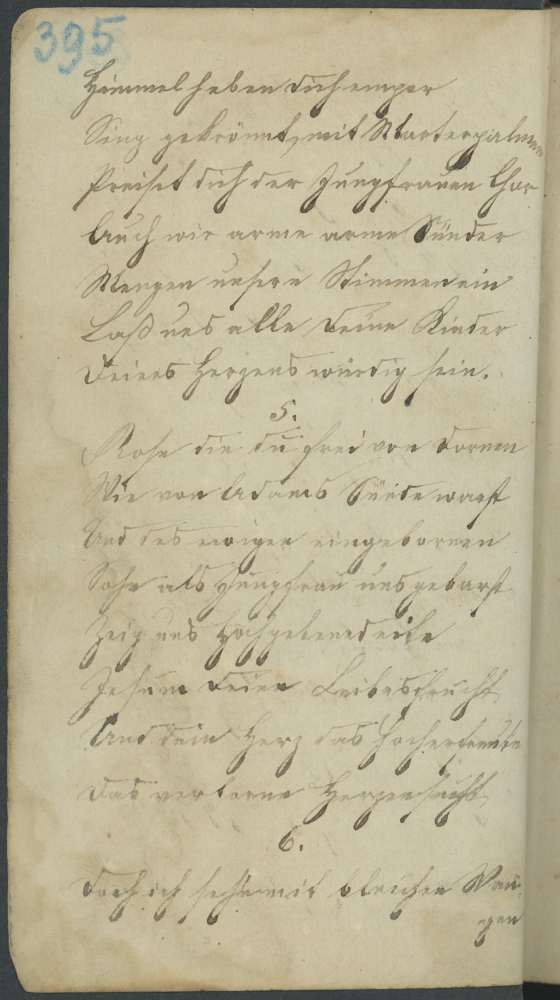 395
Himmel heben dich empor
Sieg gekrönnt, mit Marterpalmen
Preiset dich der Jungfrauen Chor
Auch wir arme arme Sünder
Mengen unsere Stimmen ein
Laß uns alle deine Kinder
Deines Herzens würdig sein.
5.
Rose die du frei von Dornen
Wie von Adams Sünde warst
Und des ewigen eingebornen
Sohn als Jungfrau uns gebarst
Zeig uns Hochgebenedeite
Jesum deine Leibesfrucht
Und dein Herz das hocherfreute
Das verlorne Herzen sucht
6.
Doch ich seh mit bleichen Wan-
gen